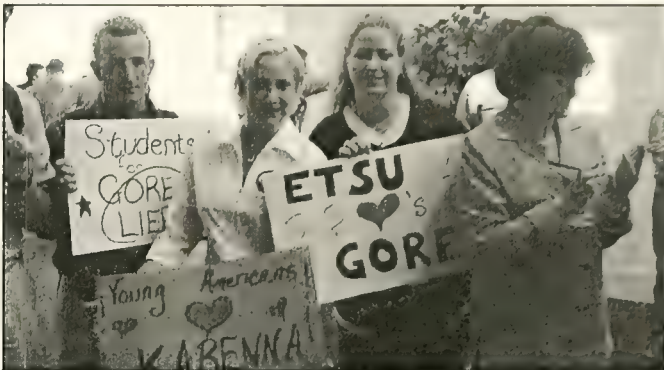 Students
for
GORE
LIE
ETSU
♥'s
GORE
Young Americans
♥
KARENNA